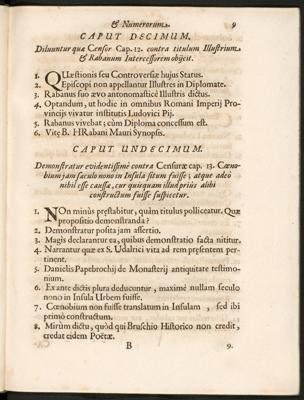 & Numerorum.
9
CAPUT DECIMUM.
Diluuntur quæ Censor Cap. 12. contra titulum Illustrium
& Rabanum Intercessorem objicit.
1. QUæstionis seu Controversiæ hujus Status.
2. Episcopi non appellantur Illustres in Diplomate.
3. Rabanus suo ævo antonomasticè Illustris dictus.
4. Optandum, ut hodie in omnibus Romani Imperij Pro-
vincijs vivatur institutis Ludovici Pij.
5. Rabanus vivebat; cùm Diploma concessum est.
6. Vitę B. HRabani Mauri Synopsis.
CAPUT UNDECIMUM.
Demonstratur evidentissimè contra Censuræ cap. 13. Cœno-
bium jam sæculo nono in Insula situm fuisse; atque adeò
nihil esse causæ, cur quisquam illud priùs alibi
constructum fuisse suspicetur.
1. NOn minùs pręstabitur, quàm titulus polliceatur. Quæ
propositio demonstranda?
2. Demonstratur posita jam assertio.
3. Magis declarantur ea, quibus demonstratio facta nititur.
4. Narrantur quæ ex S. Udalrici vita ad rem pręsentem per-
tinent.
5. Danielis Papebrochij de Monasterij antiquitate testimo-
nium.
6. Ex ante dictis plura deducuntur, maximè nullam seculo
nono in Insula Urbem fuisse.
7. Cœnobium non fuisse translatum in Insulam, sed ibi
primò constructum.
8. Mirùm dictu, quòd qui Bruschio Historico non credit,
credat eidem Poëtæ.
B
9.